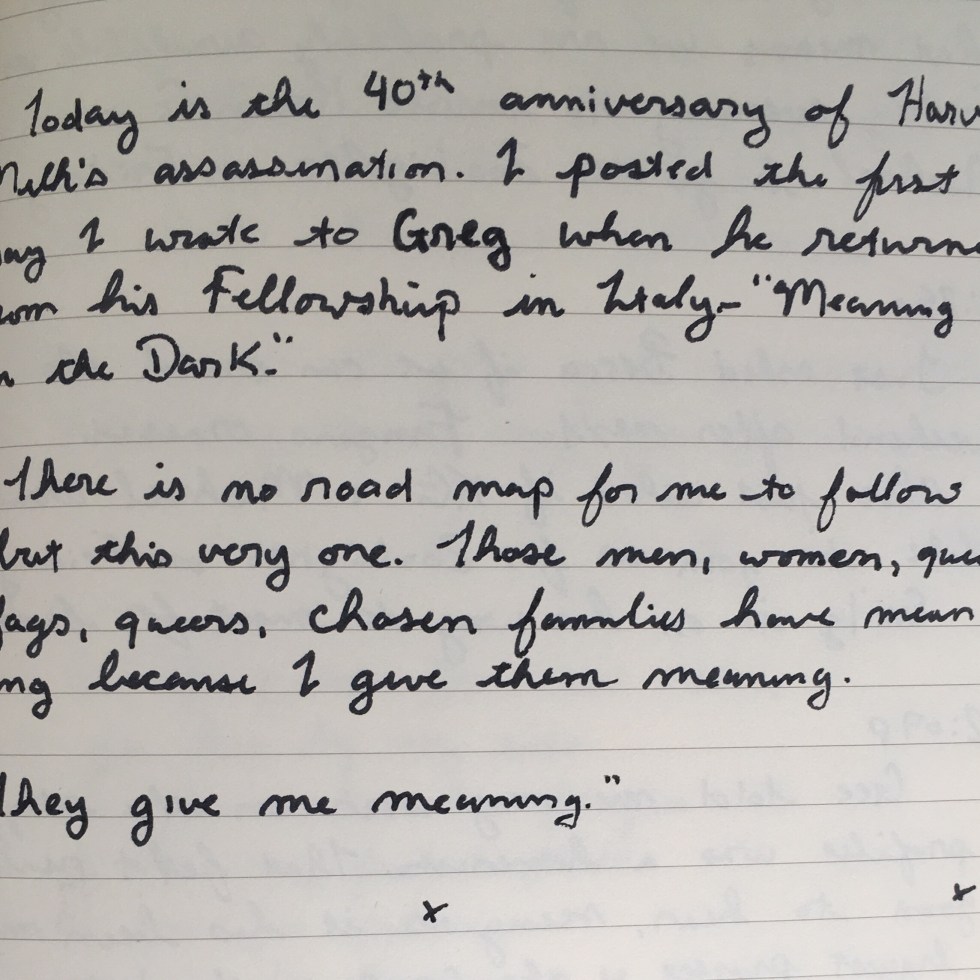 Today is the 40th anniversary of Harv
Milk's assassination. I posted the first
ay I wrote to Greg when he returne
om his Fellowship in Italy - "Meaning
the Dark."
There is no road map for me to follow
but this very one. Those men, women, que
fags, queers, chosen families have mean
ng because I give them meaning.
They give me meaning."
x x